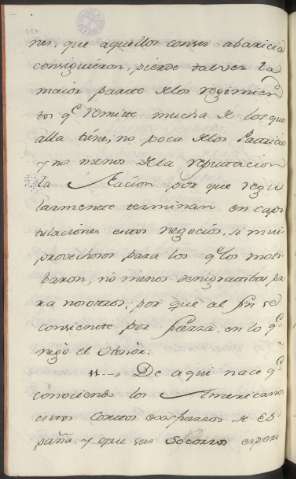 nes, que aquellos consu abaricia
consiguieron, pierde talvez la
maior parte de los regimien
tos q.e remite mucha de los que
alla tiene, no poca de los Patricios
y no menos de la reputacion
la Nacion, por que regu
larmente terminan en capi
tulaciones estos negocios, si mui
provechosos para los q.e los mobi
baron, no menos denigratibos pa
ra nosotros, por que al fin se
consiente por fuerza en lo q.e
nego el
De aqui nace q.e
conociendo los Americanos
estos cortos de Es
paña, y que sus socorros